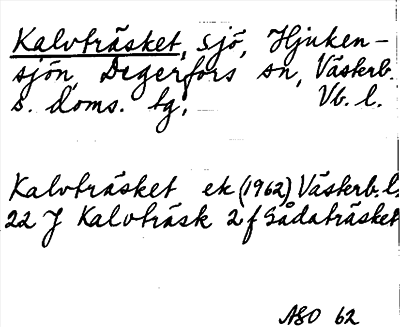 Kalvträsket, sjö, Hjuken-
sjön, Degerfors sn, Västerb.
s. doms. tg, Vb. l.
Kalvträsket ek (1962) Västerb. l.
22 J Kalvträsk 2 f Sådaträsket
ASO 62